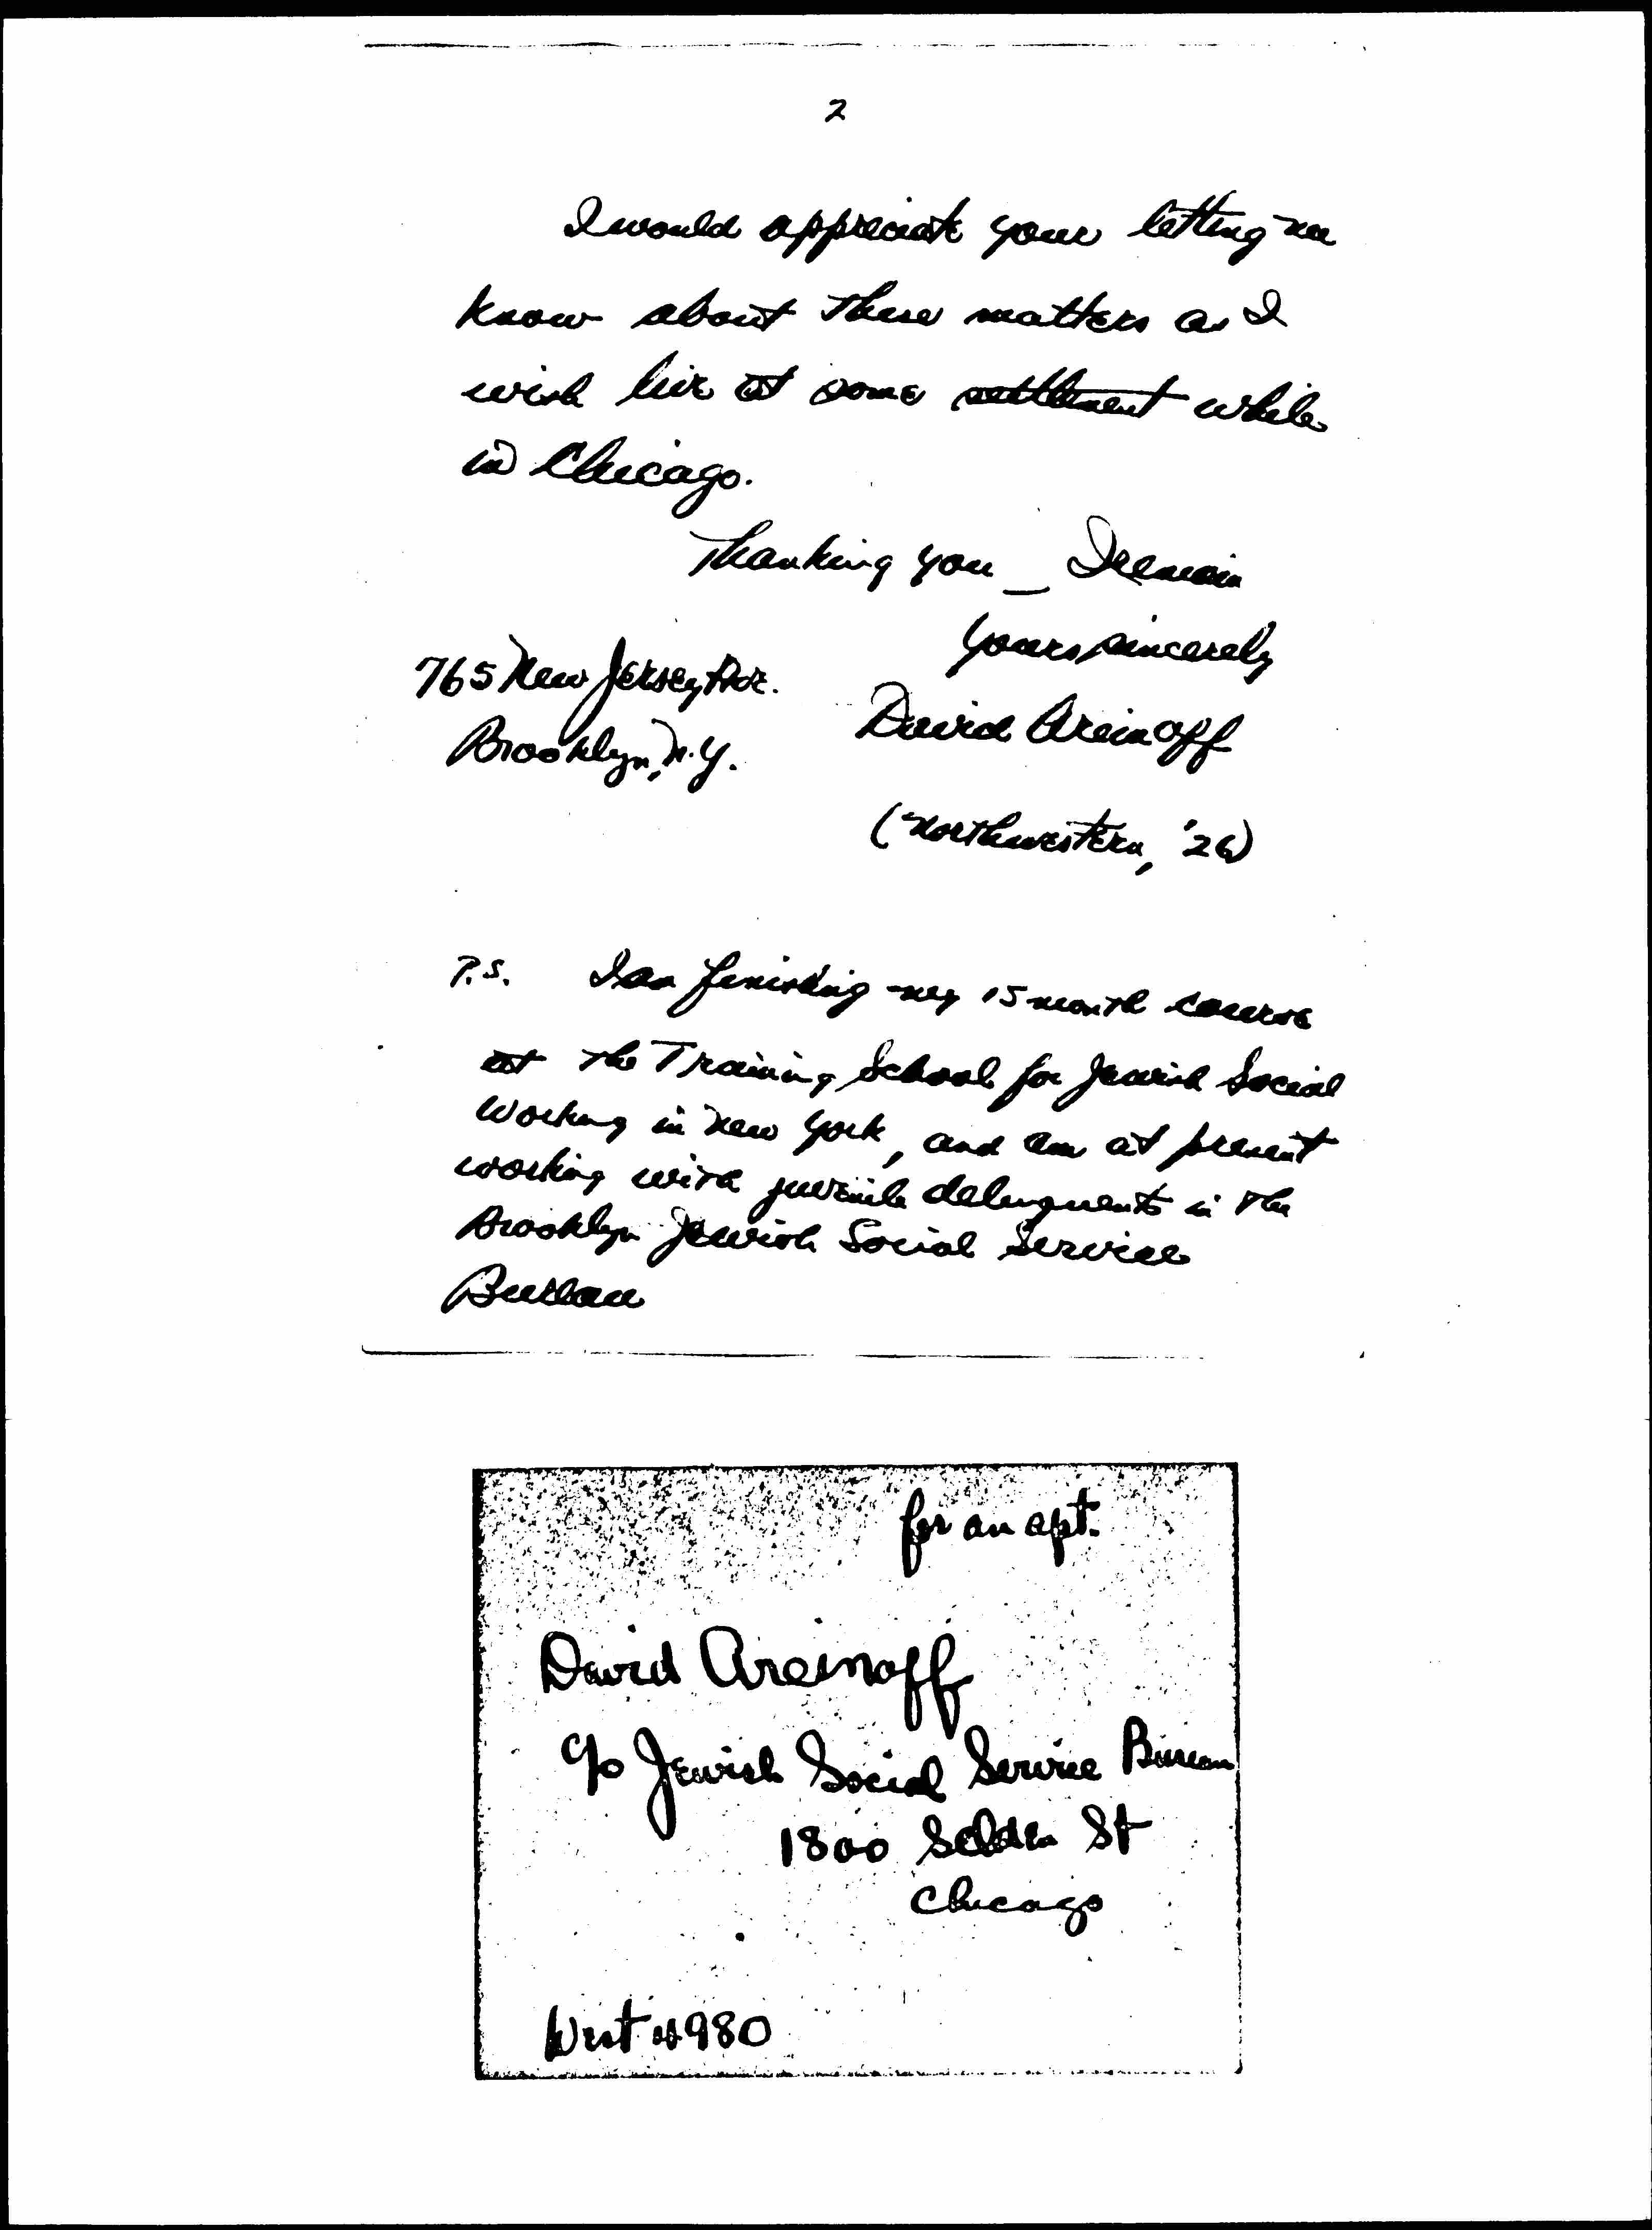 2
I would appreciate your letting me
know about these matters as I
wish live at some settlement while
in Chicago.
Thanking you _ I remain
Yours sincerely
765 New Jersey Ave.
Brooklyn, N.Y.
David Areinoff
(Northwestern, '26)
P.S. I am finishing my 15 month course
at the Training School for Jewish Social
Working in New York, and am at present
working with juvenile delinquents in the
Brooklyn Jewish Social Service
Bureau
for an apt.
David Areinoff
c/o Jewish Social Service Bureau
1800 Selden St
Chicago
West 4980